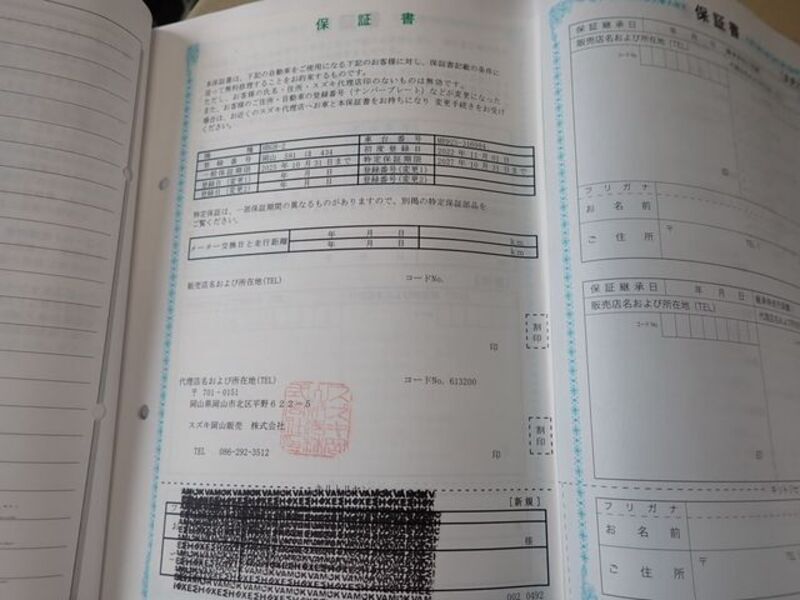 保証書
本保証書は、下記の自動車をご使用になる下記のお客様に対し、保証書記載の条件に
従って無料修理することをお約束するものです。
ただし、お客様の氏名・住所・スズキ代理店印のないものは無効です。
また、お客様のご住所・自動車の登録番号(ナンバープレート)などが変更になった
場合は、お近くのスズキ代理店へお車と本保証書をお持ちになり 変更手続きをお受け
ください。
機種 車台番号
登録番号 岡山 581 ほ 434 初度登録日 2022 年 11 月 01 日
一般保証期限 2025 年 10 月 31 日まで 特定保証期限 2027 年 10 月 31 日まで
登録日(変更1) 年 月 日 登録番号(変更1)
登録日(変更2) 年 月 日 登録番号(変更2)
特定保証は、一部保証期間の異なるものがありますので、別掲の特定保証部品を
ご覧ください。
メーター交換日と走行距離 年 月 日 km
年 月 日 km
販売店名および所在地(TEL) コードNo.
印
割印
代理店名および所在地(TEL) コードNo. 613200
〒 701-0151
岡山県岡山市北区平野622-5
スズキ岡山販売 株式会社
TEL 086-292-3512
印
割印
キリトリセン
[新規]
様
002 0492
保証書
保証継承日 年 月 日
販売店名および所在地(TEL)
コードNo
印
フリガナ
お名前
ご住所 〒 TEL
保証継承日 年 月 日
販売店名および所在地(TEL)
コードNo
印
フリガナ
お名前
ご住所 〒 TEL